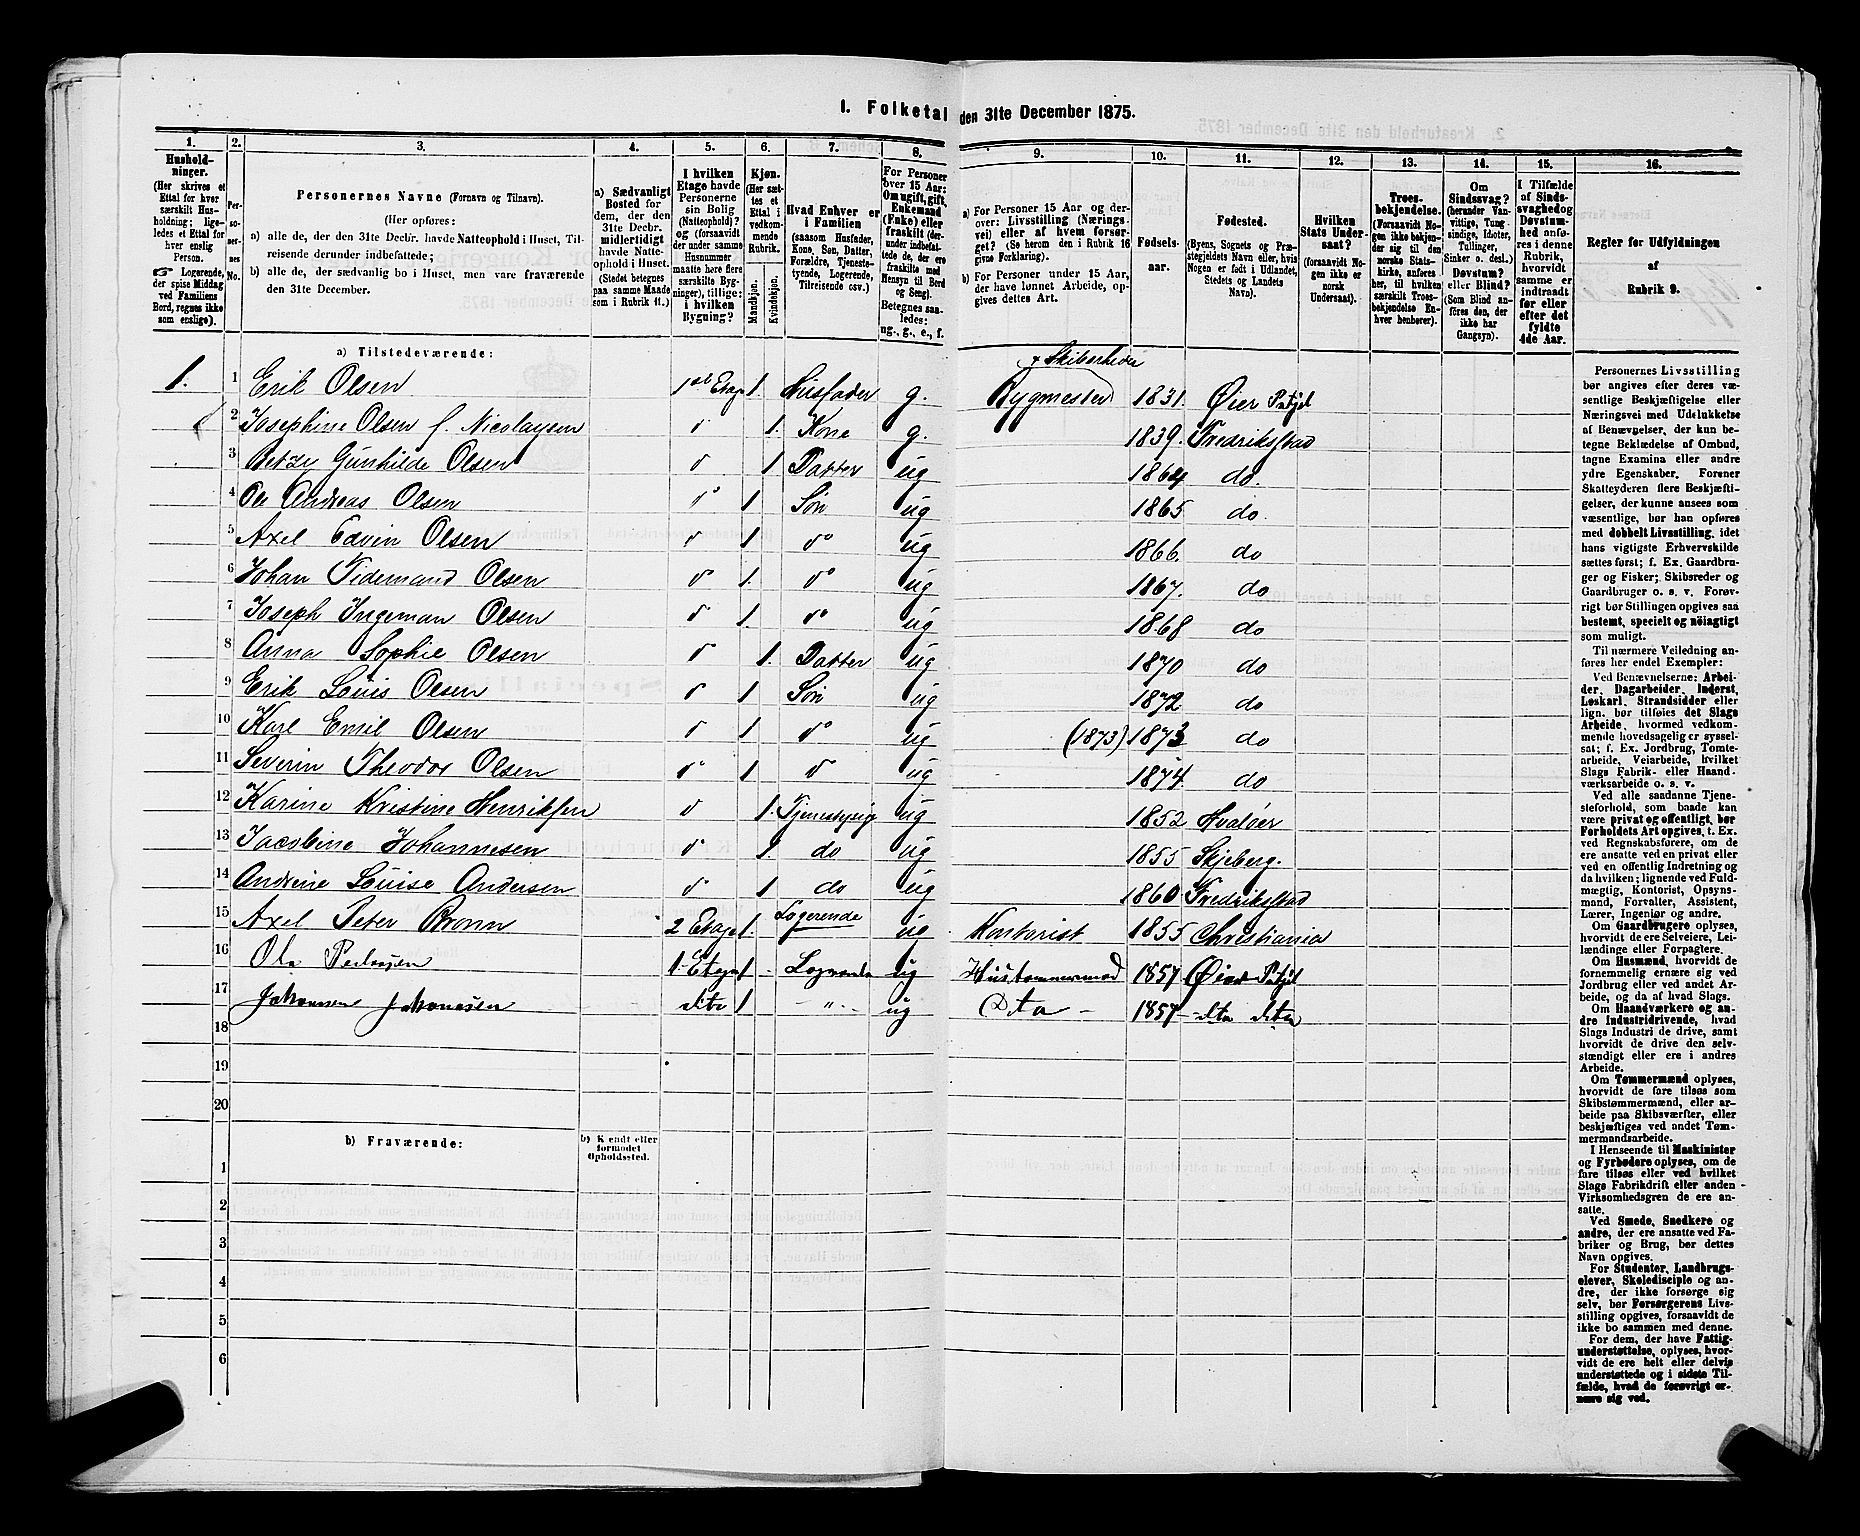 1. Folketal den 31te December 1875.
1. 2. 3. 4. 5. 6. 7. 8. 9. 10. 11. 12. 13. 14. 15. 16.
Husholdninger.
(Her skrives et Ettal for hver særskilt Husholdning; ligeledes et Ettal for hver enslig Person.
☞ Logerende, der spise Middag ved Familiens Bord, regnes ikke som enslige).
Personernes No.
Personernes Navne (Fornavn og Tilnavn).
(Her opføres:
a) alle de, der den 31te Decbr. havde Natteophold i Huset, Tilreisende derunder indbefattede;
b) alle de, der sædvanlig bo i Huset, men vare fraværende den 31te December.
a) Sædvanligt Bosted for dem, der den 31te Decbr. midlertidigt havde Natteophold i Huset. (Stedet betegnes paa samme Maade som i Rubrik 11.)
I hvilken Etage havde Personerne sin Bolig (Natteophold)? og (forsaavidt der under samme Husnummer maatte høre flere særskilte Bygninger), tillige: i hvilken Bygning?
Kjøn. (Her sættes et Ettal i vedkommende Rubrik. Mandkjøn. Kvindekjøn.
Hvad Enhver er i Familien (saasom Husfader, Kone, Søn, Datter, Forældre, Tjenestetyende, Logerende, Tilreisende osv.)
For Personer over 15 Aar: Om ugift, gift, Enkemand (Enke) eller fraskilt (derunder indbefattede de, der ere fraskilte med Hensyn til Bord og Seng). Betegnes saaledes: ug., g., e., f.
a) For Personer 15 Aar og derover: Livsstilling (Næringsvei) eller af hvem forsørget? (Se herom den i Rubrik 16 givne Forklaring).
b) For Personer under 15 Aar, der have lønnet Arbeide, opgives dettes Art.
Fødselsaar.
Fødested. (Byens, Sognets og Præstegjeldets Navn eller, hvis Nogen er født i Udlandet, Stedets og Landets Navn).
Hvilken Stats Undersaat? (forsaavidt Nogen ikke er norsk Undersaat).
Troesbekjendelse. (Forsaavidt Nogen ikke bekjender sig til den norske Statskirke, anføres her, til hvilken særskilt Troesbekjendelse Enhver henhører).
Om Sindssvag? (herunder Vanvittige, Tungsindige, Idioter, Tullinger, Sinker o. desl.). Døvstum? eller Blind? (Som Blind anføres den, der ikke har Gangsyn).
I Tilfælde af Sindssvaghed og Døvstumhed anføres i denne Rubrik, hvorvidt samme er indtraadt før eller efter det fyldte 4de Aar.
Regler for Udfyldningen af Rubrik 9.
a) Tilstedeværende:
1. 1 Erik Olsen 1st Etage 1. Husfader g. Bygmester & Skibsrheder 1831. Øier Prtgjel
2 Josephine Olsen f. Nicolaysen do 1. Kone g. 1839. Fredrikstad
3 Betzy Gunhilde Olsen do 1 Datter ug 1864 do.
4 Ole Andreas Olsen do 1 Søn ug 1865 do.
5 Axel Edvin Olsen do 1 do ug 1866. do
6 Johan Tidemand Olsen do 1. do ug 1867. do
7 Joseph Ingeman Olsen do 1. do ug 1868 do
8 Anna Sophie Olsen do 1. Datter ug 1870 do
9 Erik Louis Olsen do 1 Søn ug 1872 do
10 Karl Emil Olsen do 1 do ug (1873) 1873 do
11 Severin Theodor Olsen do 1. do ug 1874. do
12 Karine Kristine Henriksen do 1. Tjenestpige ug 1852 Hvaløer
13 Jacobine Johannesen do 1. do ug 1855 Skjeberg.
14 Andrine Louise Andersen do 1 do ug 1860 Fredrikstad
15 Axel Peter Bronn 2 Etage 1. Logerende ug Kontorist 1855 Christiania
16 Ole Pedersen 1 Etage 1 Logerende ug Hustømmermand 1857 Øier Prtgjel
17 Johannes Johannesen dito 1 " ug Dito 1857 dito dito
18
19
20
b) Fraværende:
b) Kjendt eller formodet Opholdssted.
1
2
3
4
5
6
Personernes Livsstilling
bør angives efter deres væsentlige Beskjæftigelse eller
Næringsvei med Udelukkelse
af Benævnelser, der kun betegne Beklædelse af Ombud,
tagne Examina eller andre
ydre Egenskaber. Forener
Skatteyderen flere Beskjæftigelser, der kunne ansees som
væsentlige, bør han opføres
med dobbelt Livsstilling, idet
hans vigtigste Erhvervskilde
sættes først; f. Ex. Gaardbruger og Fisker; Skibsreder og
Gaardbruger o. s. v. Forøvrigt bør Stillingen opgives saa
bestemt, specielt og nøiagtigt
som muligt.
Til nærmere Veiledning anføres her endel Exempler:
Ved Benævnelserne: Arbeider, Dagarbeider, Inderst,
Løskarl, Strandsidder eller
lign. bør tilføies det Slags
Arbeide, hvormed vedkommende hovedsagelig er sysselsat; f. Ex. Jordbrug, Tomtearbeide, Veiarbeide, hvilket
Slags Fabrik- eller Haandværksarbeide o. s. v.
Ved alle saadanne Tjenesteforhold, som baade kan
være privat og offentligt, bør
Forholdets Art opgives, t. Ex.
ved Regnskabsførere, om de
ere ansatte ved en privat eller
ved en offentlig Indretning og
da hvilken; lignende ved Fuldmægtig, Kontorist, Opsynsmand, Forvalter, Assistent,
Lærer, Ingeniør og andre.
Om Gaardbrugere oplyses,
hvorvidt de ere Selveiere, Leilændinge eller Forpagtere.
Om Husmænd, hvorvidt de
fornemmelig ernære sig ved
Jordbrug eller ved andet Arbeide, og da af hvad Slags.
Om Haandværkere og andre Industridrivende, hvad
Slags Industri de drive, samt
hvorvidt de drive den selvstændigt eller ere i andres
Arbeide.
Om Tømmermænd oplyses,
hvorvidt de fare tilsøs som
Skibstømmermænd, eller arbeide paa Skibsværfter, eller
beskjæftiges ved andet Tømmermandsarbeide.
I Henseende til Maskinister
og Fyrbødere oplyses, om de
fare tilsøs eller ved hvilket
Slags Fabrikdrift eller anden
Virksomhedsgren de ere ansatte.
Ved Smede, Snedkere og
andre, der ere ansatte ved Fabriker og Brug, bør dettes
Navn opgives.
For Studenter, Landbrugselever, Skoledisciple og andre, der ikke forsørge sig
selv, bør Forsørgerens Livsstilling opgives, forsaavidt de
ikke bo sammen med denne.
For dem, der have Fattigunderstøttelse, oplyses, hvorvidt de ere helt eller delvis
understøttede og i sidste Tilfælde, hvad de forøvrigt ernære sig ved.